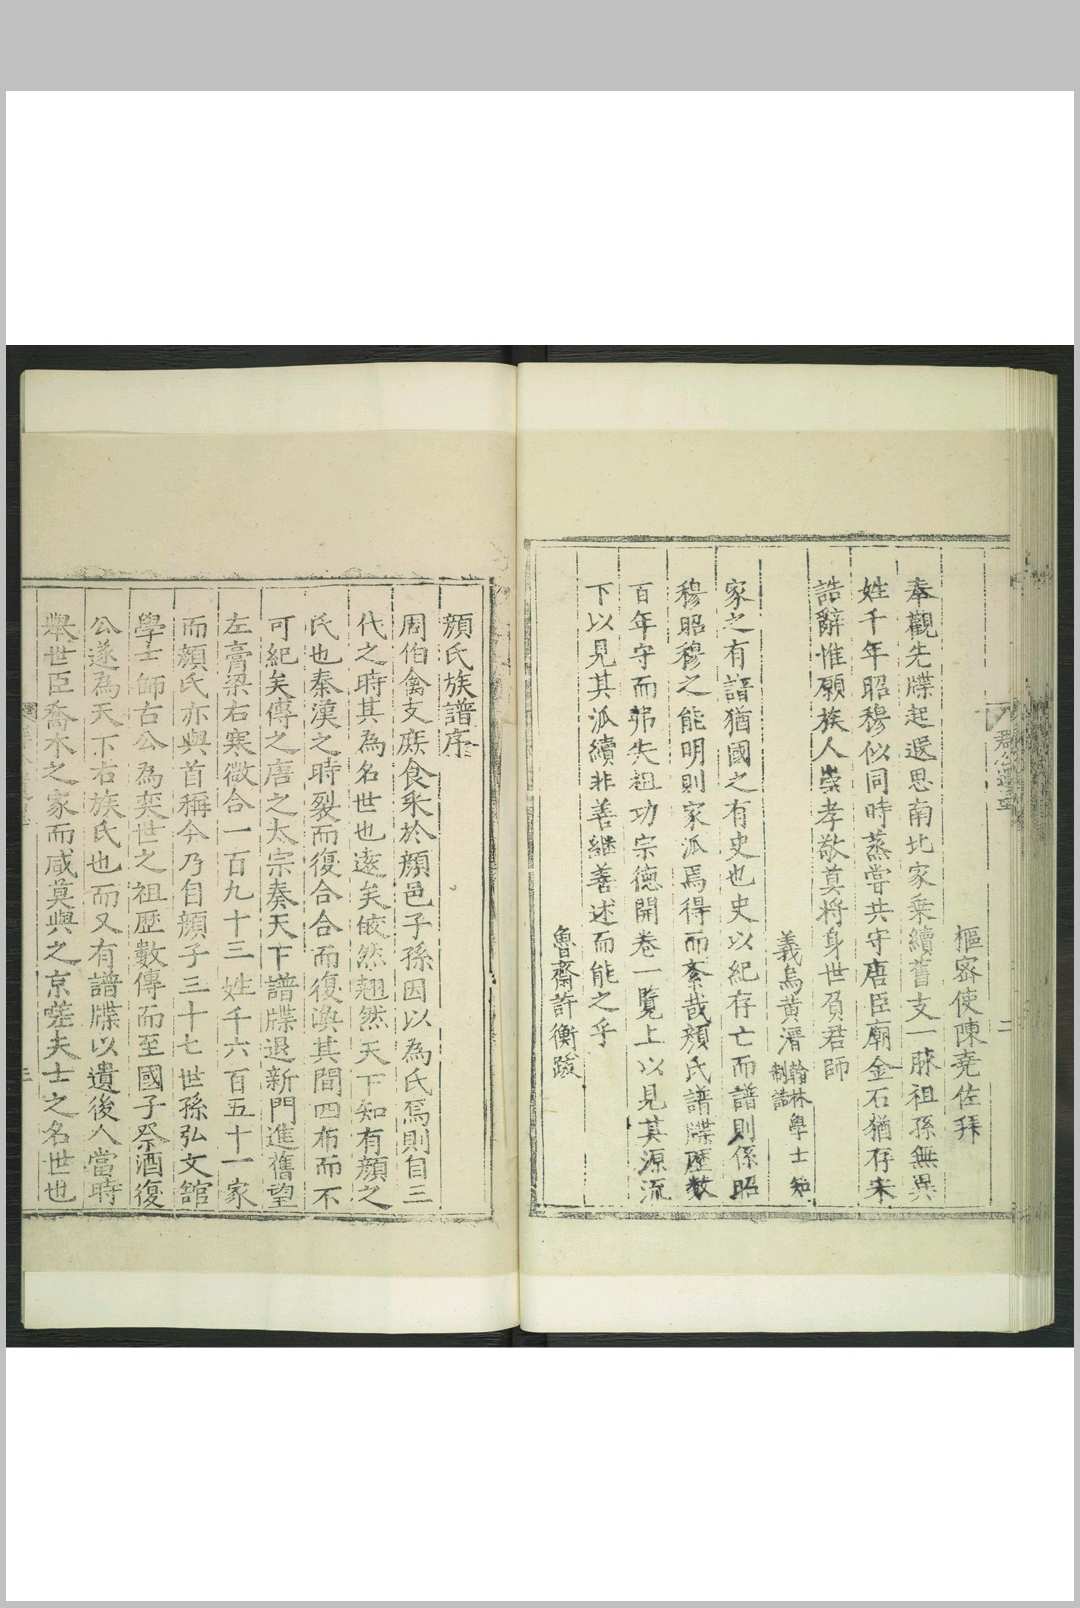 樞宻使陳堯佐拜
奉觀先牒起遐思南北家乗續舊支一脉祖孫無異
姓千年昭穆似同時蒸嘗共守唐臣廟金石猶存宋
誥辭惟願族人崇孝敬莫將身世負君師
義烏黄溍翰林學士知制誥
家之有譜猶國之有史也史以紀存亡而譜則係昭
穆昭穆之能明則家派焉得而紊哉顏氏譜牒歷数
百年守而弗失祖功宗德開卷一覽上以見其源流
下以見其派續非善継善述而能之乎
魯齋許衡跋
顏氏族譜序
周伯禽支庶食采於顏邑子孫因以為氏焉則自三
代之時其為名世也遠矣皎然翹然天下知有顏之
氏也秦漢之時裂而復合合而復渙其間四布而不
可紀矣傳之唐之太宗奏天下譜牒退新門進舊望
左膏梁右寒微合一百九十三姓千六百五十一家
而顏氏亦與首稱今乃自顏子三十七世孫弘文舘
學士師古公為奕世之祖歷數傳而至國子祭酒復
公遂為天下右族氏也而又有譜牒以遺後人當時
舉世臣喬木之家而咸莫與之京嗟夫士之名世也